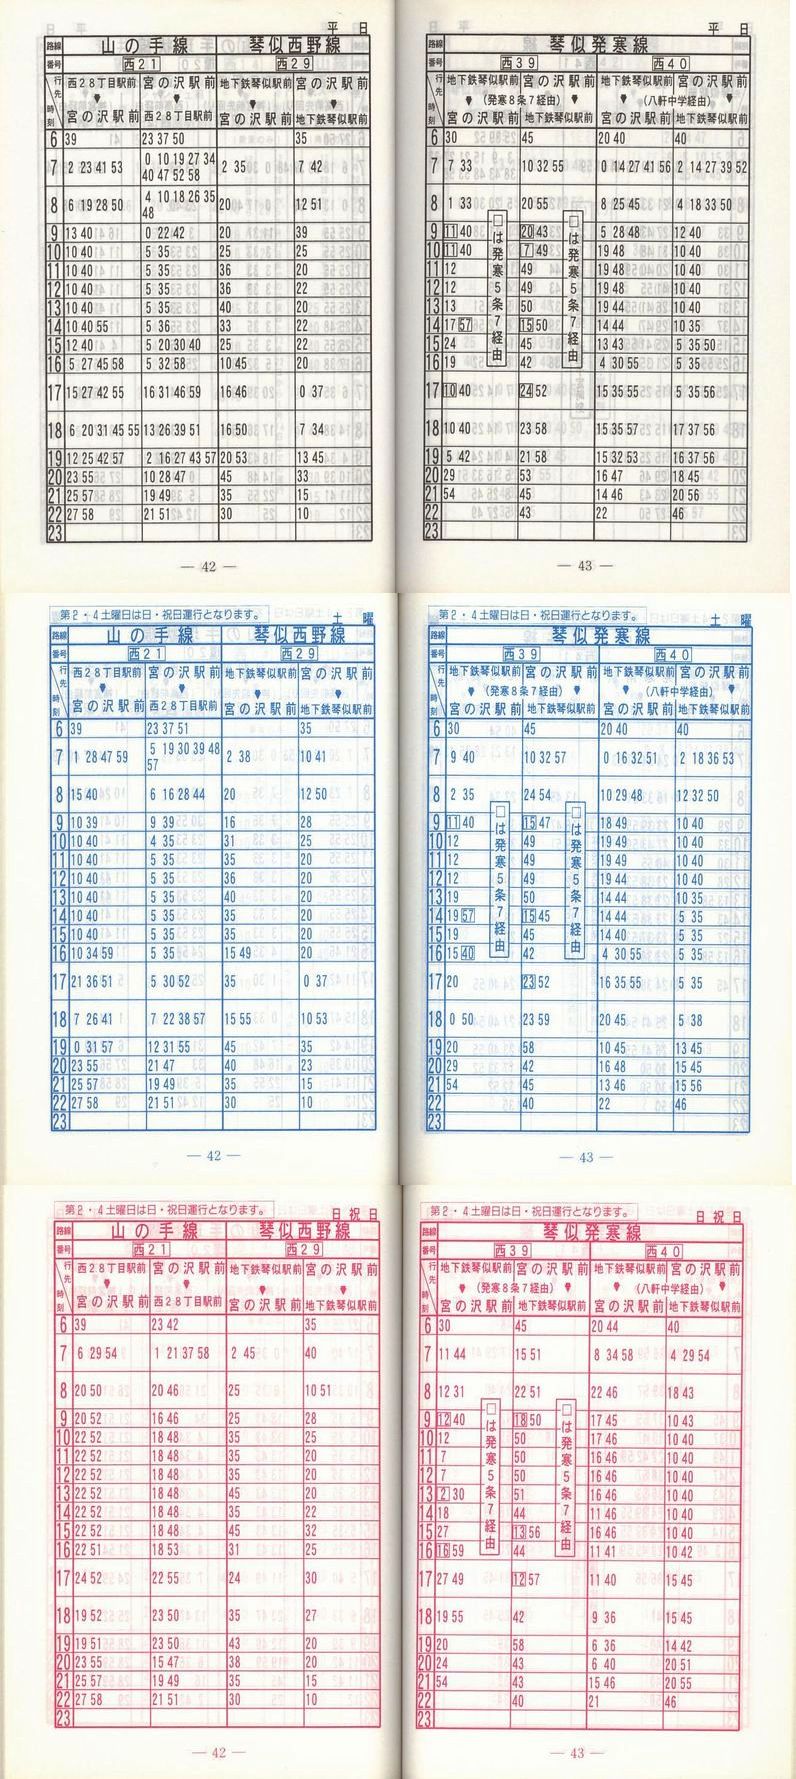 平 日
路線 山の手線 琴似西野線
番号 西21 西29
行先 時刻 西28丁目駅前 宮の沢駅前 宮の沢駅前 西28丁目駅前 地下鉄琴似駅前 宮の沢駅前 宮の沢駅前 地下鉄琴似駅前
6 39 23 37 50 35
7 2 23 41 53 0 10 19 27 34 40 47 52 58 2 35 7 42
8 6 19 28 50 4 10 18 26 35 48 20 12 51
9 13 40 0 22 42 20 39
10 10 40 5 35 25 25
11 10 40 5 35 36 20
12 10 40 5 35 36 22
13 10 40 5 35 40 20
14 10 40 55 5 36 33 22
15 12 40 5 20 30 40 25 22
16 5 27 45 58 5 32 58 10 45 20
17 15 27 42 55 16 31 46 59 16 46 0 37
18 6 20 31 45 55 13 26 39 51 16 50 7 34
19 12 25 42 57 2 16 27 43 57 20 53 13 45
20 23 55 10 28 47 45 33
21 25 57 19 49 35 15
22 27 58 21 51 30 10
23
— 42 —
平 日
路線 琴似発寒線
番号 西39 西40
行先 時刻 地下鉄琴似駅前 宮の沢駅前 (発寒8条7経由) 宮の沢駅前 地下鉄琴似駅前 地下鉄琴似駅前 宮の沢駅前 (八軒中学経由) 宮の沢駅前 地下鉄琴似駅前
6 30 45 20 40 40
7 7 33 10 32 55 0 14 27 41 56 2 14 27 39 52
8 1 33 20 55 8 25 45 4 18 33 50
9 11 40 20 43 5 28 48 12 40
10 11 40 7 49 19 48 10 40
11 12 49 19 48 10 40
12 12 49 19 48 10 40
13 13 50 19 44 10 40
14 17 57 15 50 14 44 10 35
15 24 45 13 43 5 35 50
16 19 42 4 30 55 5 35
17 10 40 24 52 15 35 55 5 35 56
18 10 40 23 58 15 35 55 17 37 56
19 5 42 21 58 15 32 53 16 37 56
20 29 53 16 47 18 45
21 54 45 14 46 20 56
22 43 22 46
23
□は発寒5条7経由
□は発寒5条7経由
— 43 —
第2・4土曜日は日・祝日運行となります。
土 曜
路線 山の手線 琴似西野線
番号 西21 西29
行先 時刻 西28丁目駅前 宮の沢駅前 宮の沢駅前 西28丁目駅前 地下鉄琴似駅前 宮の沢駅前 宮の沢駅前 地下鉄琴似駅前
6 39 23 37 51 35
7 1 28 47 59 5 19 30 39 48 57 2 38 10 41
8 15 40 6 16 28 44 20 12 50
9 10 39 9 39 16 28
10 10 40 4 35 31 25
11 10 40 5 35 35 20
12 10 40 5 35 36 20
13 10 40 5 35 40 20
14 10 40 5 35 35 20
15 10 40 5 35 35 20
16 10 34 59 5 35 15 49 20
17 21 36 51 5 30 52 35 0 37
18 7 26 41 7 22 38 57 15 55 10 53
19 0 31 57 12 31 55 45 35
20 23 55 21 47 40 23
21 25 57 19 49 35 15
22 27 58 21 51 30 10
23
— 42 —
第2・4土曜日は日・祝日運行となります。
土 曜
路線 琴似発寒線
番号 西39 西40
行先 時刻 地下鉄琴似駅前 宮の沢駅前 (発寒8条7経由) 宮の沢駅前 地下鉄琴似駅前 地下鉄琴似駅前 宮の沢駅前 (八軒中学経由) 宮の沢駅前 地下鉄琴似駅前
6 30 45 20 40 40
7 9 40 10 32 57 0 16 32 51 2 18 36 53
8 2 35 24 54 10 29 48 12 32 50
9 11 40 15 47 18 49 10 40
10 12 49 19 49 10 40
11 12 49 19 49 10 40
12 12 49 19 44 10 40
13 19 50 14 44 10 35
14 19 57 15 45 14 44 5 35
15 19 45 14 40 5 35
16 15 40 42 4 30 55 5 35
17 20 23 52 16 35 55 5 35
18 0 50 23 59 20 45 5 38
19 20 58 10 45 13 45
20 29 42 16 48 15 45
21 54 45 13 46 15 56
22 40 22 46
23
□は発寒5条7経由
□は発寒5条7経由
— 43 —
第2・4土曜日は日・祝日運行となります。
日 祝 日
路線 山の手線 琴似西野線
番号 西21 西29
行先 時刻 西28丁目駅前 宮の沢駅前 宮の沢駅前 西28丁目駅前 地下鉄琴似駅前 宮の沢駅前 宮の沢駅前 地下鉄琴似駅前
6 39 23 42 35
7 6 29 54 1 21 37 58 2 45 40
8 20 50 20 46 25 10 51
9 20 52 16 46 25 28
10 22 52 18 48 35 25
11 22 52 18 48 35 20
12 22 52 18 48 35 20
13 22 52 18 48 45 20
14 22 52 18 48 35 22
15 22 52 18 48 45 32
16 22 51 18 53 31 25
17 24 52 22 55 24 30
18 19 52 23 50 35 27
19 19 51 23 50 43 20
20 23 55 15 47 38 20
21 25 57 19 49 35 15
22 27 58 21 51 30 10
23
— 42 —
第2・4土曜日は日・祝日運行となります。
日 祝 日
路線 琴似発寒線
番号 西39 西40
行先 時刻 地下鉄琴似駅前 宮の沢駅前 (発寒8条7経由) 宮の沢駅前 地下鉄琴似駅前 地下鉄琴似駅前 宮の沢駅前 (八軒中学経由) 宮の沢駅前 地下鉄琴似駅前
6 30 45 20 44 40
7 11 44 15 51 8 34 58 4 29 54
8 12 31 22 51 22 46 18 43
9 12 40 18 50 17 45 10 43
10 12 50 17 46 10 40
11 7 50 16 46 10 40
12 7 50 16 46 10 40
13 2 30 51 16 46 10 40
14 18 44 11 46 10 40
15 27 13 56 16 46 10 40
16 16 59 44 11 41 10 42
17 27 49 12 57 11 40 15 45
18 19 55 42 9 36 15 45
19 20 58 6 36 14 42
20 24 43 6 40 20 51
21 54 43 15 46 20 55
22 40 21 46
23
□は発寒5条7経由
□は発寒5条7経由
— 43 —